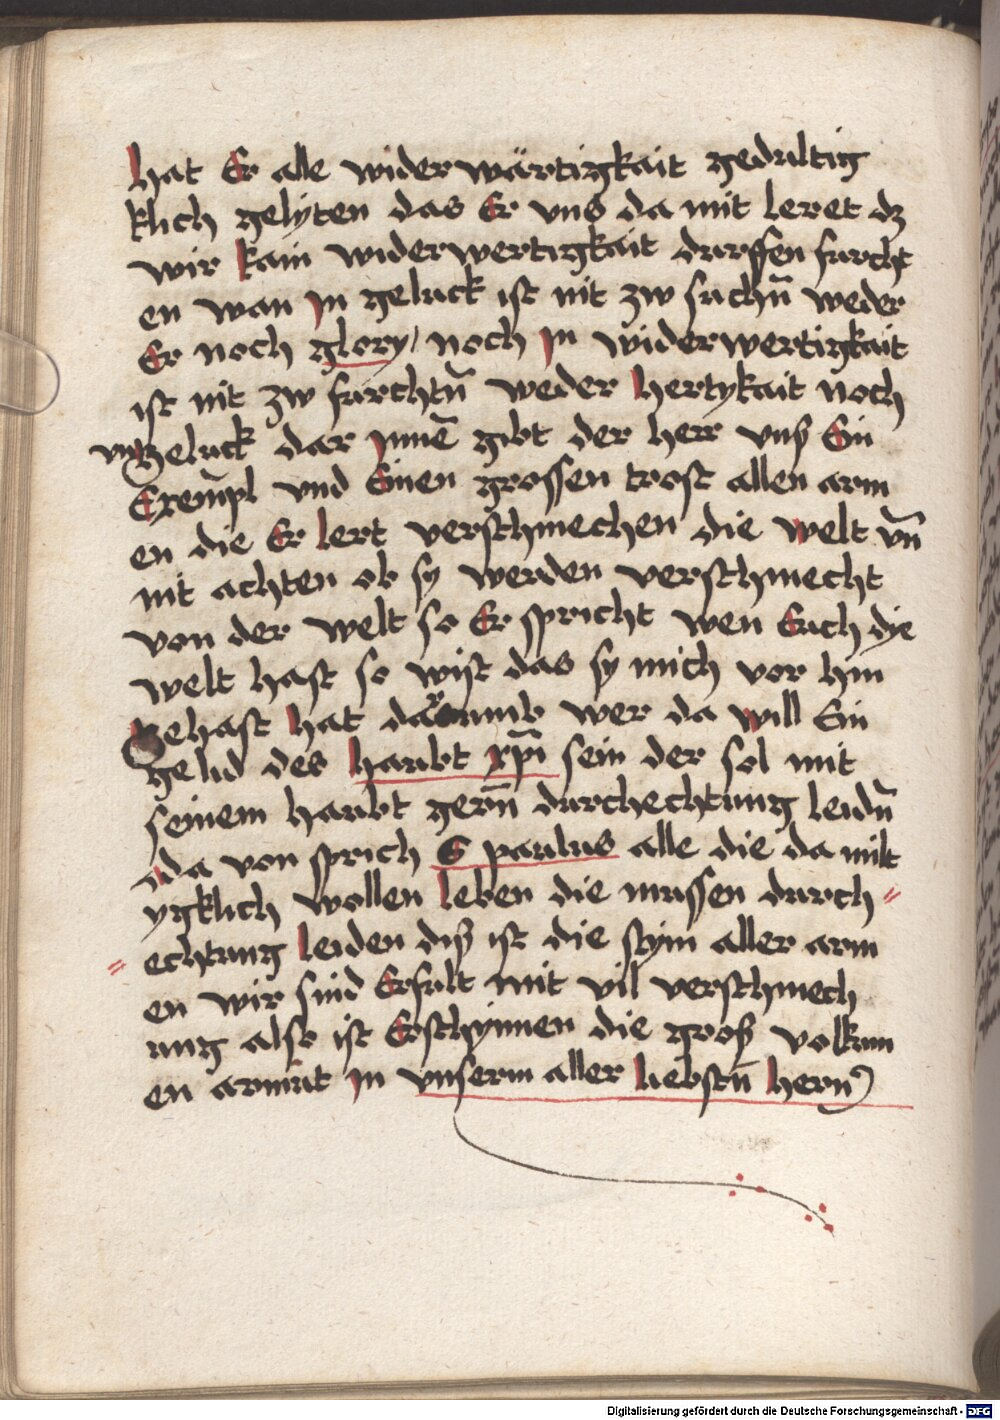 hat Er alle wider wärtigkait gedultig
klich gelyten das Er vns da mit leret dz
wir kain widerwertigkait durffen furcht
en wan jn geluck ist nit zw suchn̄ weder
Er noch glory / noch jn widerwertigkait
ist nit zw furchtn̄ weder hertykait noch
vngeluck dar jnnē gibt der herr vnß Ein
Exempl vnd Einen grossen trost allen arm
en die Er lert verschmechen die welt vn̄
nit achten ob sy werden verschmecht
von der welt so Er spricht wen Euch dye
welt hast so wist das sy mich vor hin
gehast hat darumb wer da will Ein
gelid des haubt xp̄i sein der sol mit
seinem haubt gern̄ durchechtung leidn̄
da von sprich S paulus alle die da milt
ygklich wollen leben die mussen durch
echtung leiden diß ist die stym aller arm
en wir sind Erfult mit vil verschmech
ung also ist Erschynnen die groß volkum
en armut jn vnserm aller liebstn̄ hern
Digitalisierung gefördert durch die Deutsche Forschungsgemeinschaft - DFG